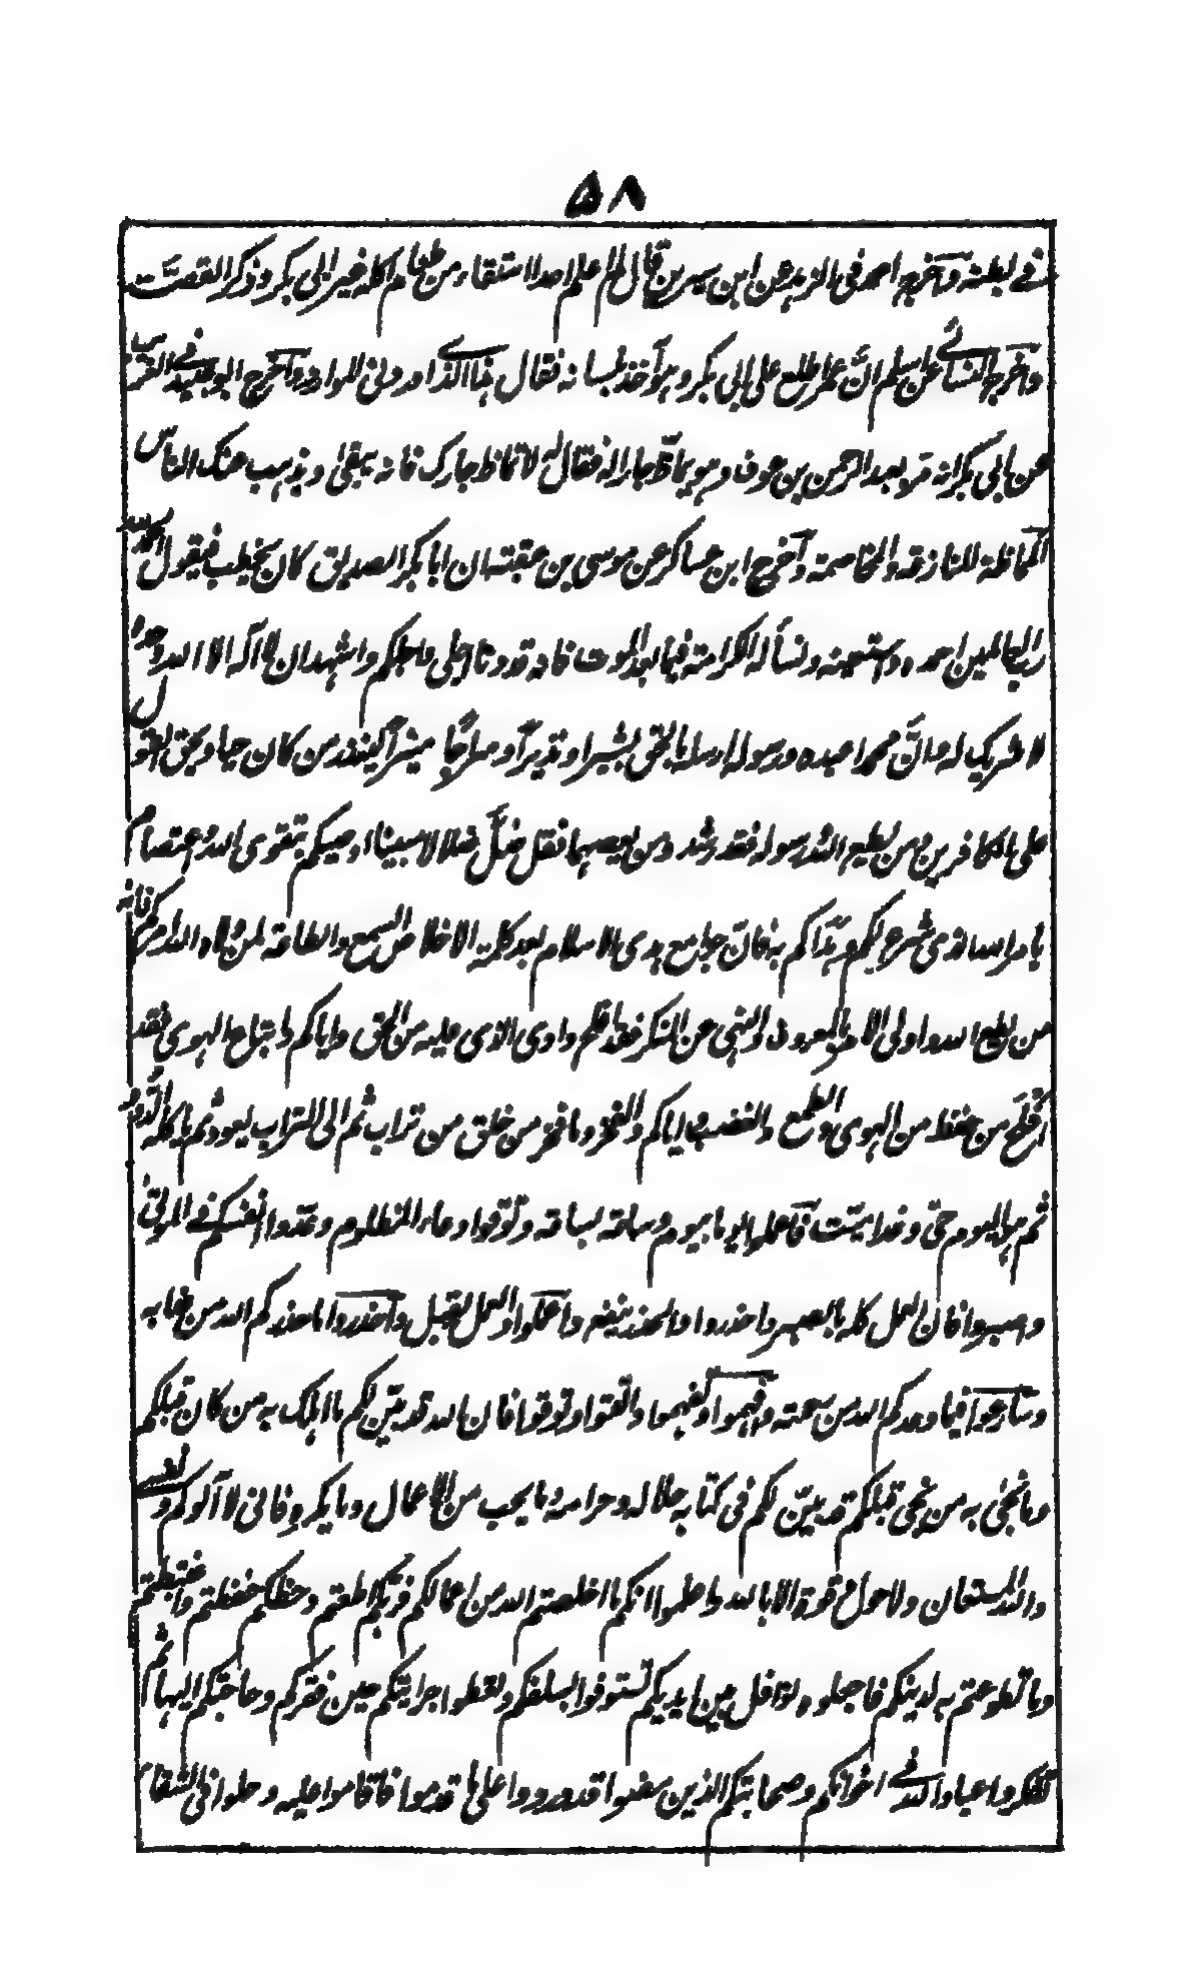 ۵۸
فے بطنہ وآخرج احمد فی الزہد عن ابن سیرین قال لم اعلم احدا استقاء من طعام اکلہ غیر ابی بکر وذکر القصۃ
وآخرج النسائے عن اسلم انّ عمر اطلع علی ابی بکر وہو آخذ بلسانہ فقال ہذا الذے اوردنی الموارد وآخرج ابو عبید فے الغریب
عن ابی بکر انہ مرّ بعبد الرحمن بن عوف وہو یماظّ جارا لہ فقال لہ لا تماظ جارک فانہ یبقیٰ ویذہب عنک الناسُ
المماظۃ المنازعۃ والمخاصمۃ وآخرج ابن عساکر عن موسی بن عقبۃ ان ابا بکر الصدیق کان یخطب فیقول الحمد للہ
رب العالمین احمدہ واستعینہ ونسألہ الکرامۃ فیما بعد الموت فانہ قد دنا اجلی واجلکم واشہد ان لا آلہ الا اللہ وحدہ
لا شریک لہ وانّ محمدا عبدہ ورسولہ ارسلہ بالحق بشیرا ونذیراً وسراجًا منیراً لینذر من کان حیا ویحق القول
علی الکافرین ومن یطیع اللہ ورسولہ فقد رشد ومن یعصہما فقد ضلّ ضلالا مبینا اوصیکم بتقوی اللہ والاعتصام
بامر اللہ الذی شرع لکم وہداکم بہ فانّ جوامع ہدی الاسلام بعد کلمۃ الاخلاص السمع والطاعۃ لمن ولاہ اللہ امرکم فانہ
من یطع اللہ واولی الامر بالمعروف والنہی عن المنکر فقد افلح وادی الذی علیہ من الحق وایاکم واتباع الہوی فقد
افلح من حفظ من الہوی والطمع والغضب وایاکم والفخر وما فخر من خلق من تراب ثم الی التراب یعود ثم یاکلہ الدود
ثم ہو الیوم حیّ وغدا میّت فاعملوا یوما بیوم وساعۃ بساعۃ وتوقوا دعاء المظلوم وعدوا انفسکم فے الموتیٰ
وصبروا فان العمل کلہ بالصبر واحذروا والحذر ینفع واعملوا والعمل یقبل واحذروا ما حذرکم اللہ من عذابہ
وسارعوا فیما وعدکم اللہ من رحمتہ وافہموا وتفہموا واتقوا وتوقوا فان اللہ قد بیّن لکم ما اہلک بہ من کان قبلکم
وما نجیٰ بہ من نجی قبلکم قد بیّن لکم فی کتابہ حلالہ وحرامہ وما یحب من الاعمال وما یکرہ فانی لا آلوکم ونفسے
واللہ المستعان ولا حول ولا قوۃ الا باللہ واعلموا انکم ما اخلصتم للہ من اعمالکم فربکم اطعتم وحظکم حفظتم واغتبطتم
وما تطوعتم بہ لدینکم فاجعلوہ نوافل بین ایدیکم تستوفوا بسلفکم وتعطوا جرایتکم حین فقرکم وحاجتکم الیہا ثم
تفکروا عباد اللہ فے اخوانکم وصحابتکم الذین مضوا قد وردوا علی ما قدموا فاقاموا علیہ وحلوا فی الشقاء